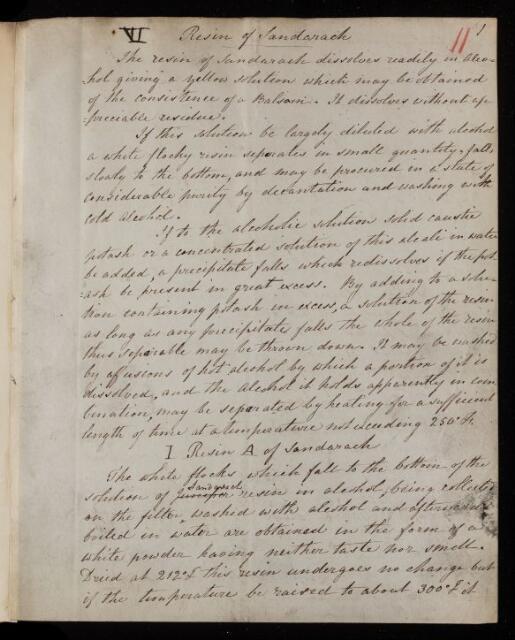 VI Resin of Sandarach
11 1
The resin of Sandarach dissolves readily in Alco-
-hol giving a yellow solution which may be obtained
of the consistence of a Balsam. It dissolves without ap-
-preciable residue.
If this solution be largely diluted with alcohol
a white flocky resin separates in small quantity, falls
slowly to the bottom, and may be procured in a state of
considerable purity by decantation and washing with
cold alcohol.
If to the alcoholic solution solid caustic
potash or a concentrated solution of this alcali in water
be added, a precipitate falls which redissolves if the pot-
-ash be present in great excess. By adding to a solu-
-tion containing potash in excess, a solution of the resin
as long as any precipitate falls the whole of the resin
thus separable may be thrown down. It may be washed
by affusions of hot alcohol by which a portion of it is
dissolved, and the alcohol it holds apparently in com-
-bination, may be separated by heating for a sufficient
length of time at a temperature not exceeding 250° F.
I Resin A of Sandarach
The white flocks which fall to the bottom of the
Sandarach
solution of juniper resin in alcohol, being collected
on the filter, washed with alcohol and afterwards
boiled in water are obtained in the form of a
white powder having neither taste nor smell.
Dried at 212° F this resin undergoes no change but
if the temperature be raised to about 300° F it